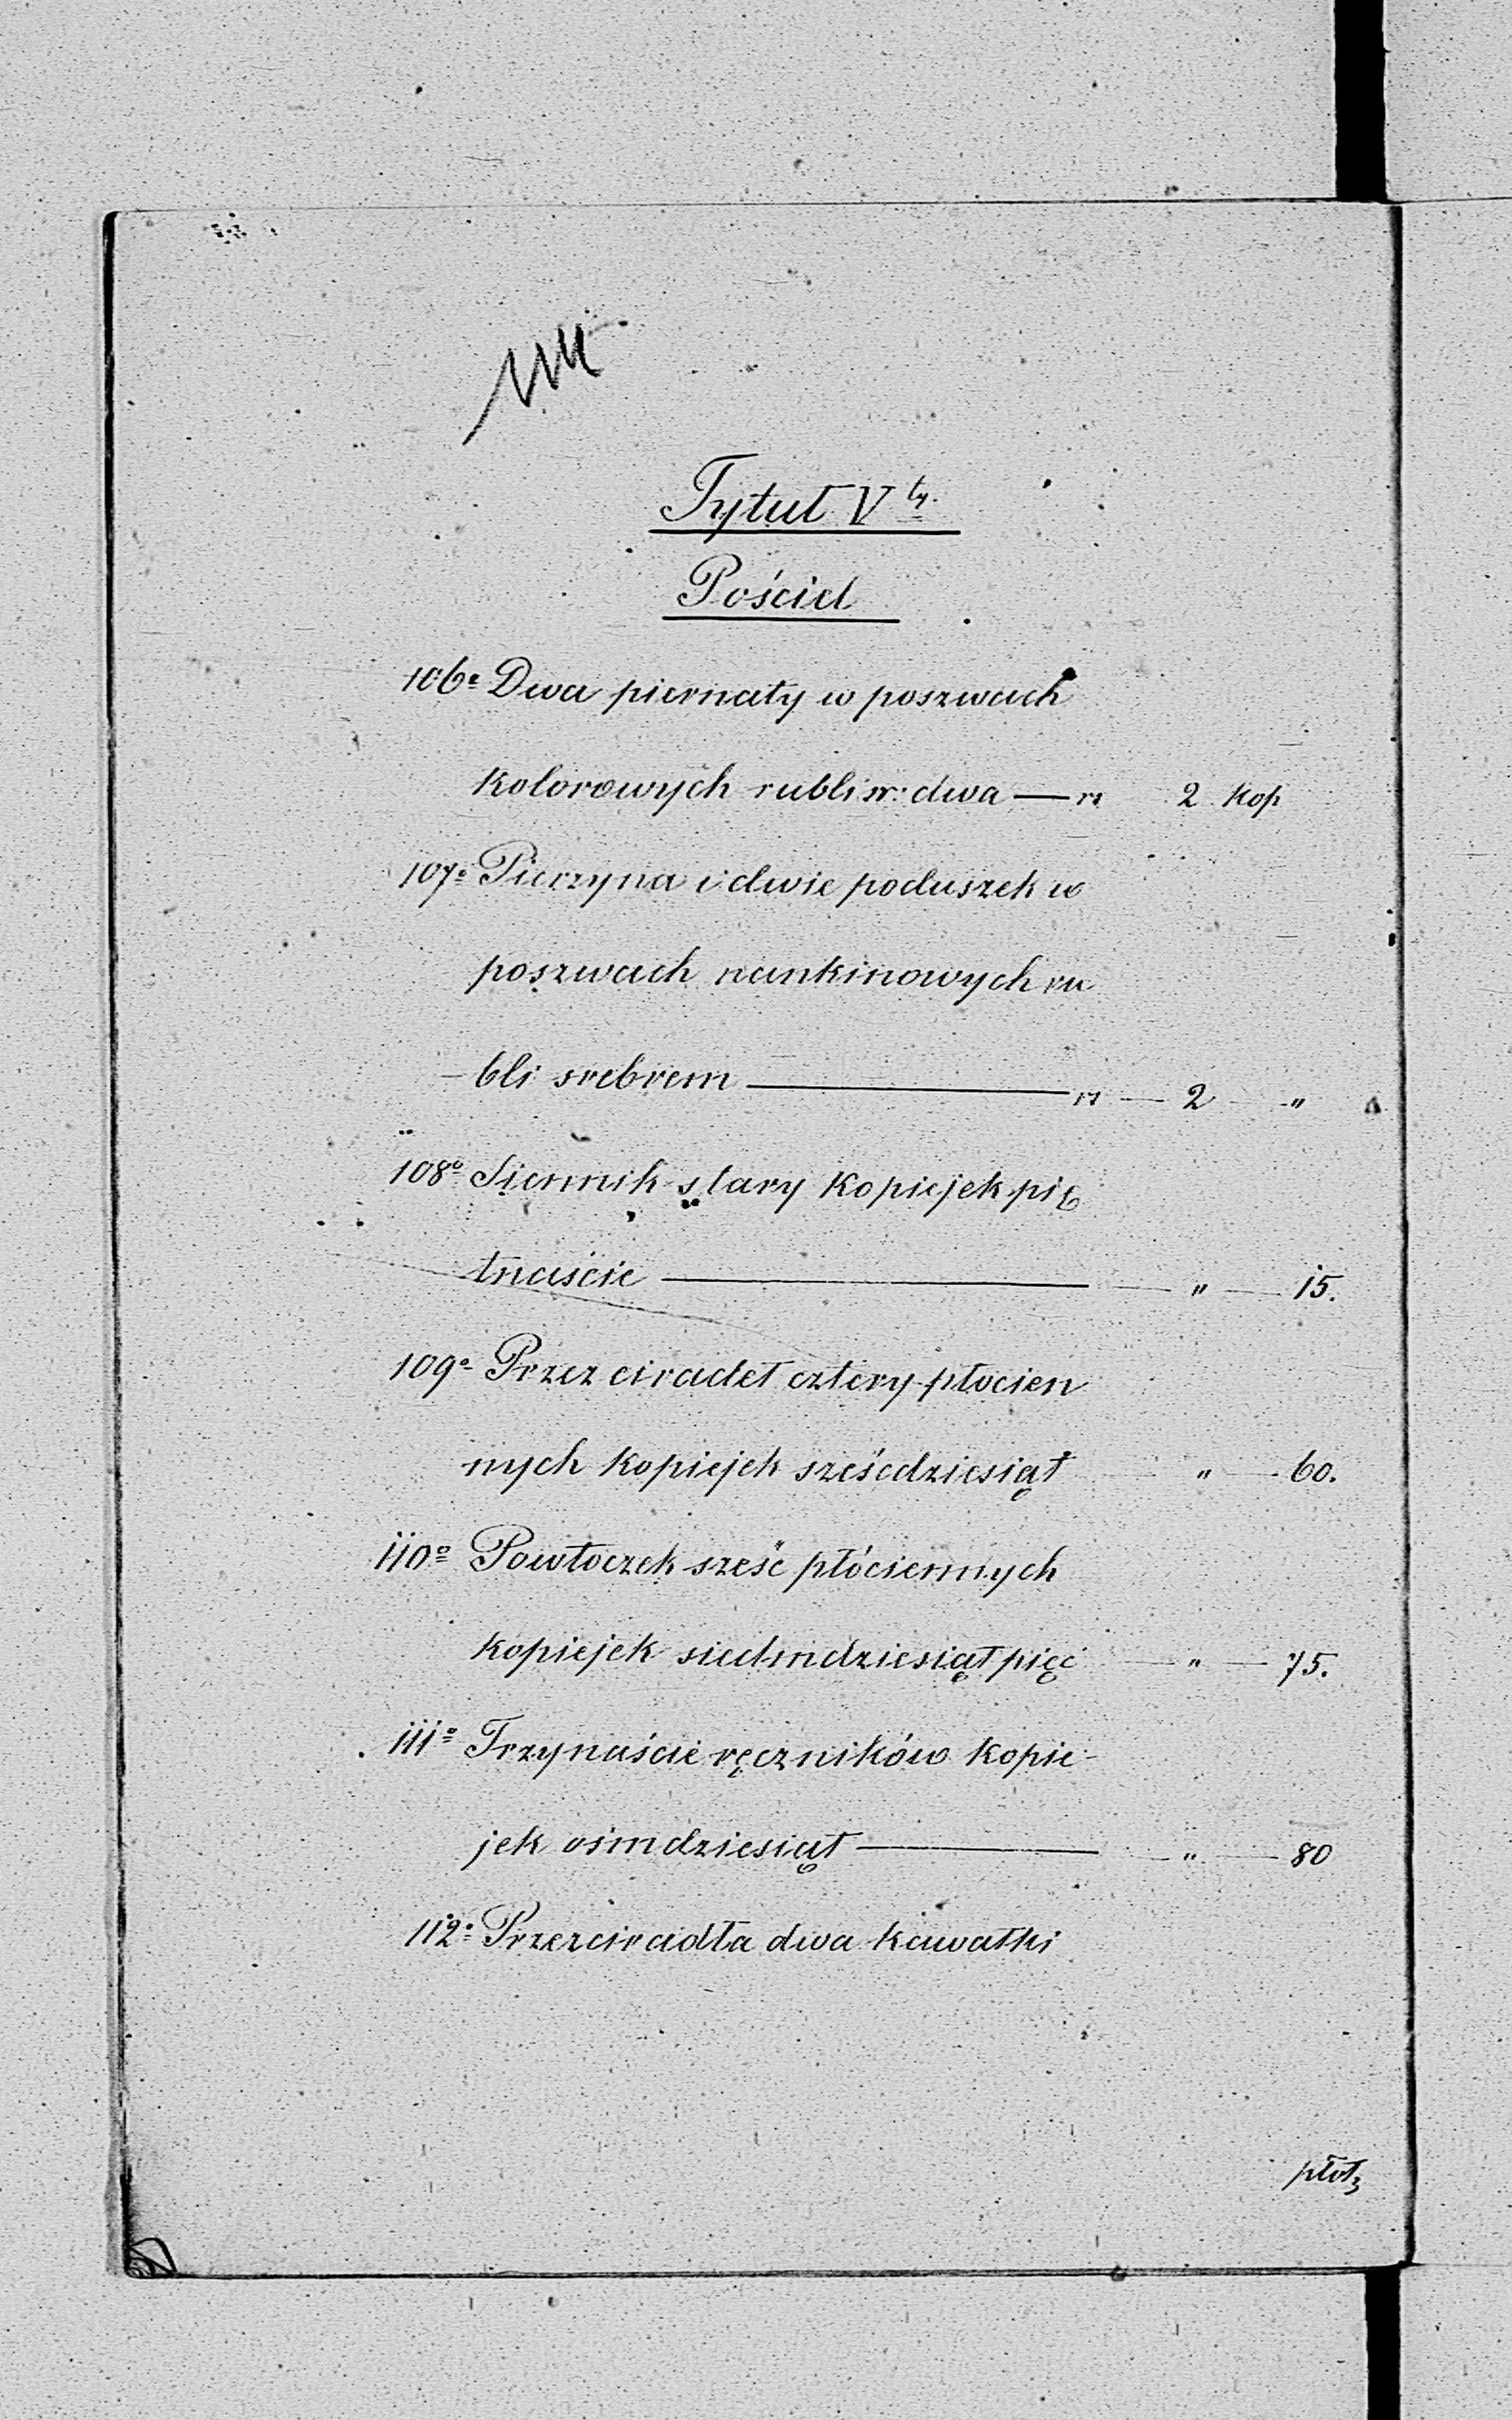 Tytuł V ty.
Pościel
106o Dwa piernaty w poszwach
kolorowych rubli sr: dwa — rs 2 Kop
107o Pierzyna i dwie poduszek w
poszwach nankinowych ru
- bli srebrem — rs — 2 — "
108o Siennik stary Kopiejek pię
tnaście — " — 15.
109o Przezciradeł cztery płocien
nych Kopiejek sześćdziesiąt " — 60.
110o Powłoczek sześć płóciennych
kopiejek siedmdziesiąt pięć — " — 75.
111o Trzynaście ręczników Kopie-
jek ośmdziesiąt — " — 80
112o Przezciradła dwa kawałki